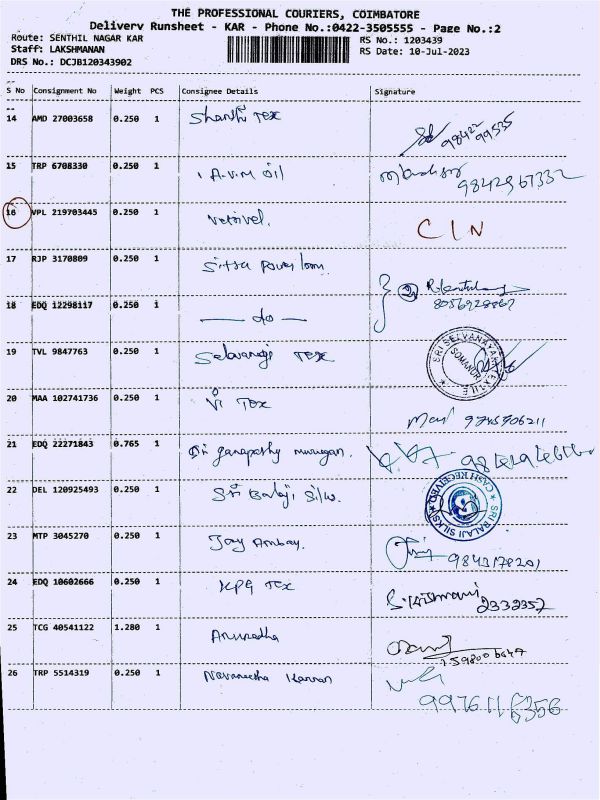 THE PROFESSIONAL COURIERS, COIMBATORE
Delivery Runsheet - KAR - Phone No.:0422-3505555 - Page No.:2
Route: SENTHIL NAGAR KAR
RS No.: 1203439
Staff: LAKSHMANAN
RS Date: 10-Jul-2023
DRS No.: DCJB120343902
S No Consignment No Weight PCS Consignee Details Signature
14 AMD 27003658 0.250 1 Shanthi Tex 98422 99535
15 TRP 6708330 0.250 1 A.V.M Oil 9842967332
16 VPL 219703445 0.250 1 Vetrivel. C I N
17 RJP 3170809 0.250 1 Sitra Power loom
8056928867
18 EDQ 12298117 0.250 1 — do —
19 TVL 9847763 0.250 1 Tex SRI SELVANAYAKI TEXTILE SOMANUR
20 MAA 102741736 0.250 1 Vi Tex
21 EDQ 22271843 0.765 1 Sri ganapathy murugan.
22 DEL 120925493 0.250 1 Sri Balaji Silk. SRI BALAJI SILKS CASH RECEIVED
23 MTP 3045270 0.250 1 Jay Ambay. 9843178201
24 EDQ 10602666 0.250 1 KPG Tex 2332357
25 TCG 40541122 1.280 1 Anuradha
26 TRP 5514319 0.250 1 Navaneetha Kannan